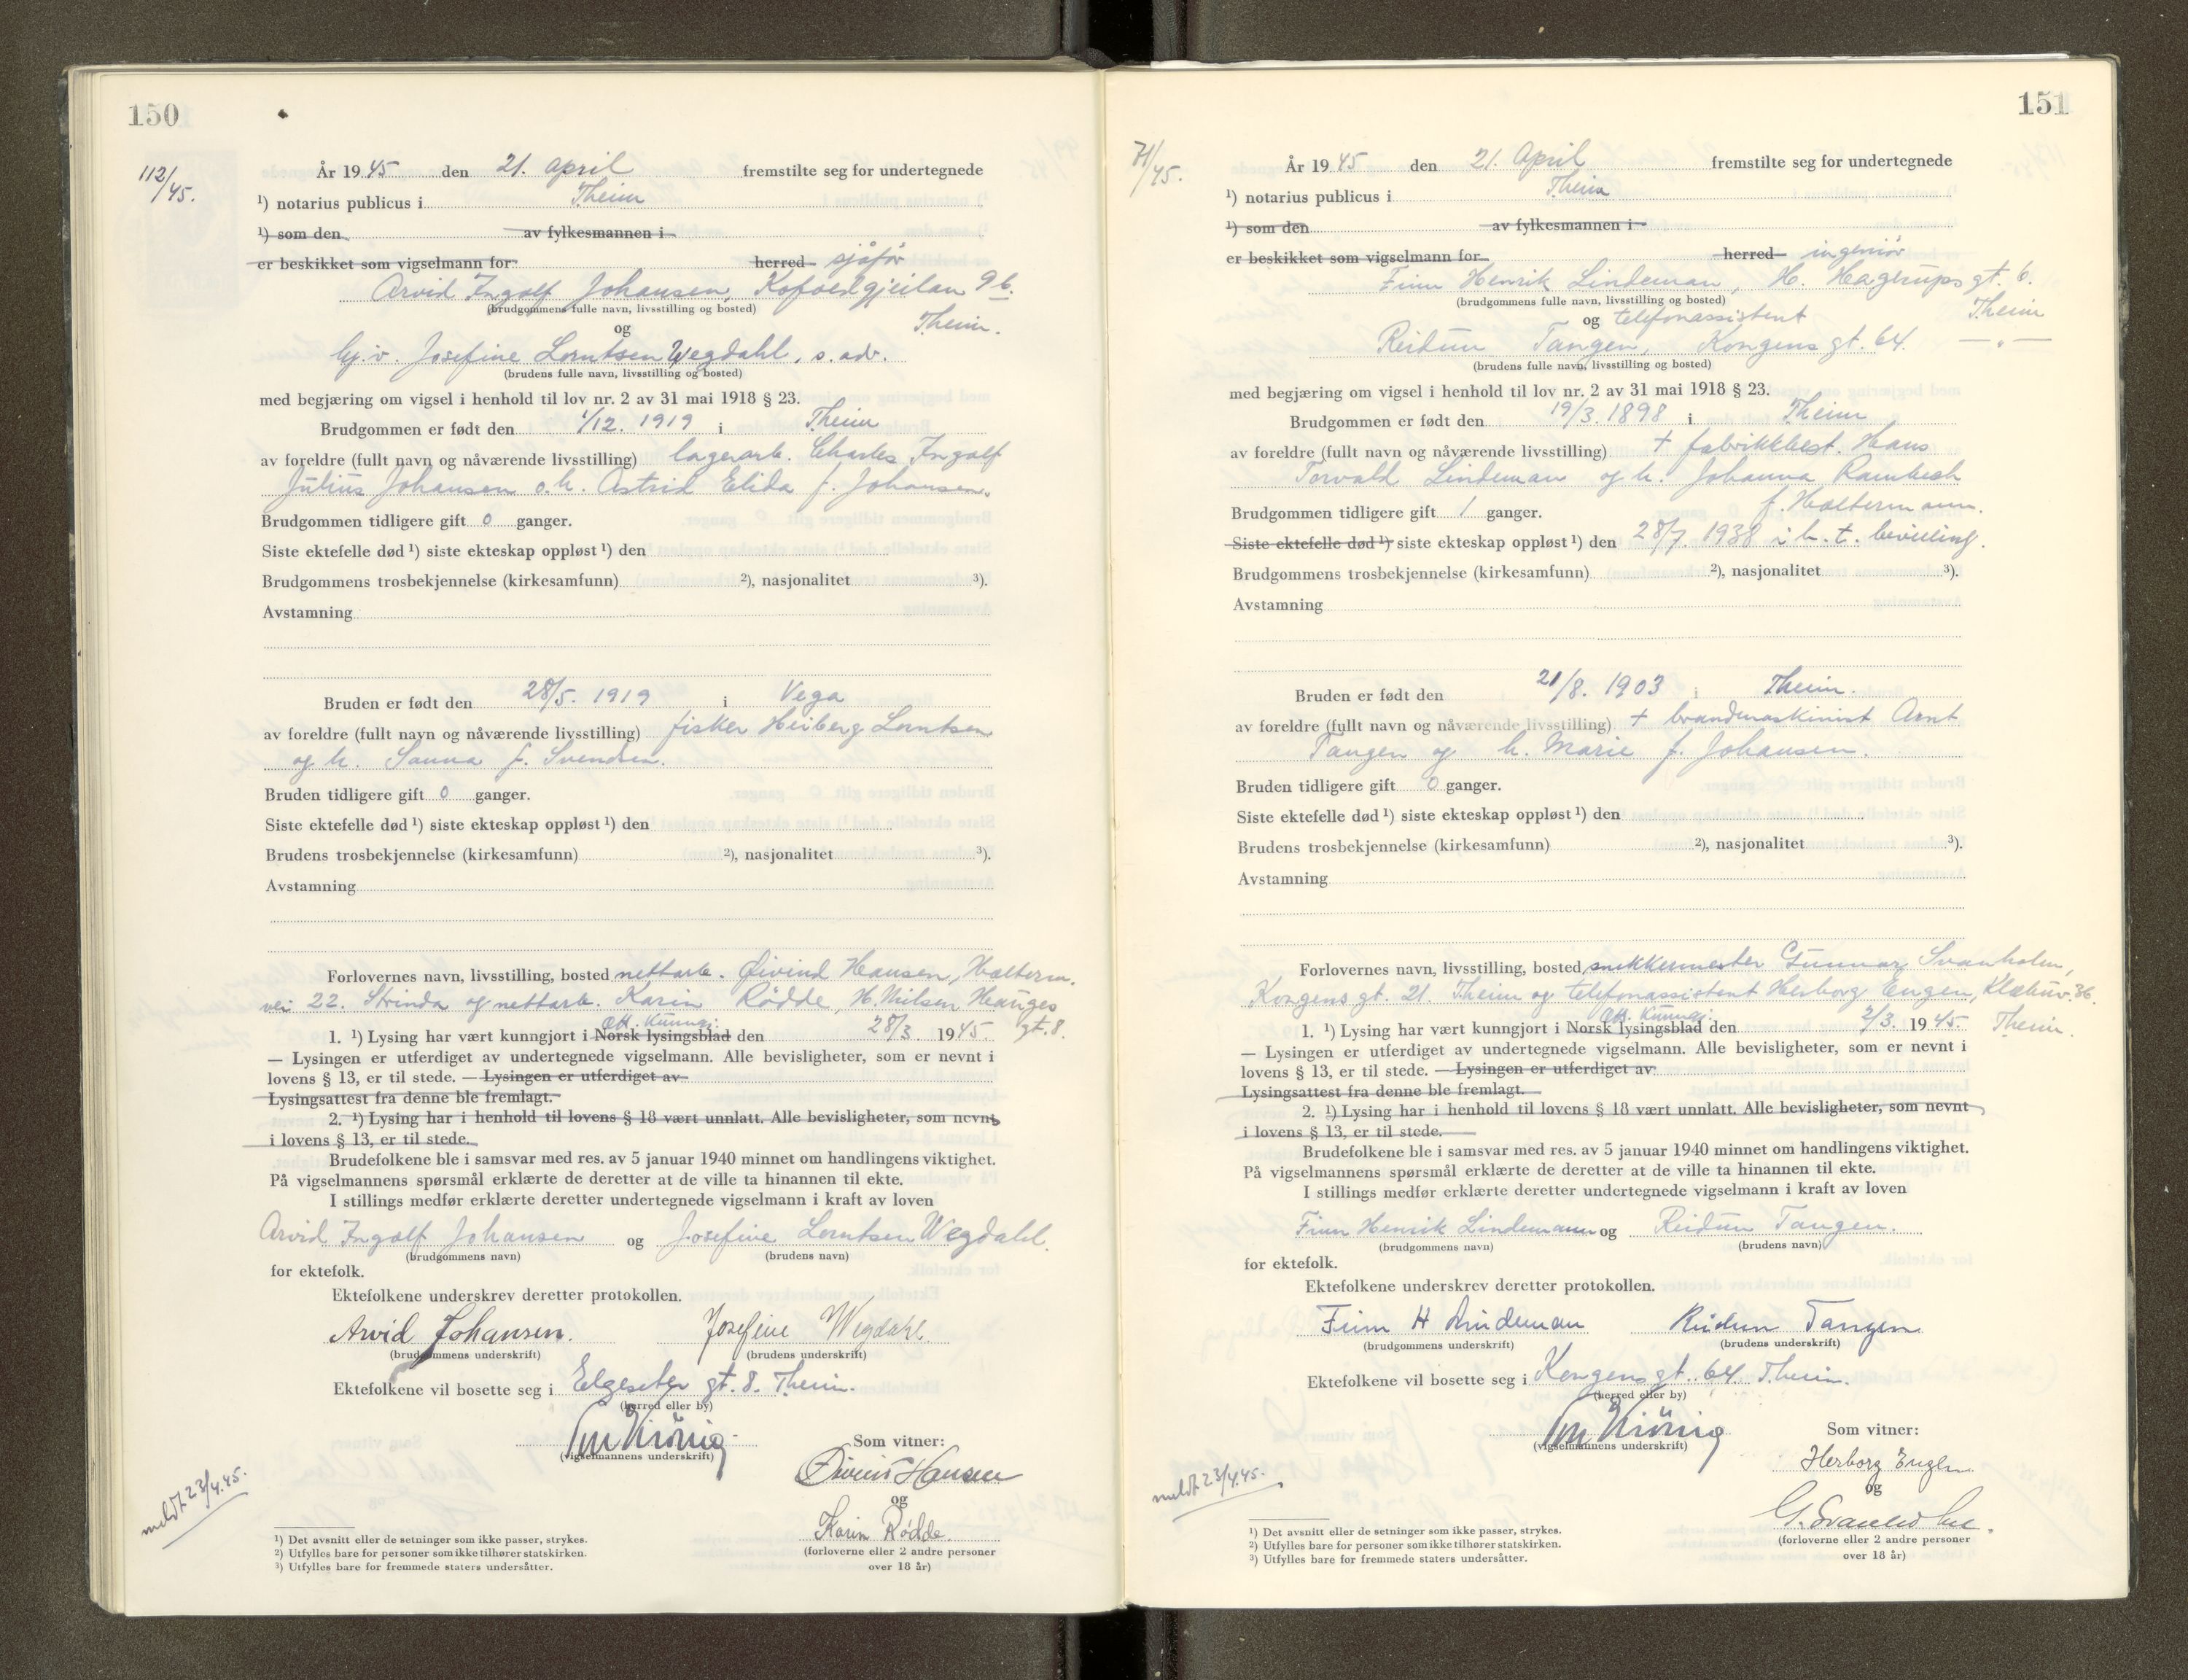 150
112/45.
År 1945 den 21. april fremstilte seg for undertegnede
¹) notarius publicus i Theim
¹) som den av fylkesmannen i
er beskikket som vigselmann for herred sjåfør
Arvid Ingolf Johansen, Kofoedgjeilan 9b.
(brudgommens fulle navn, livsstilling og bosted) Theim.
og
Josefine Lorntsen Wegdahl, s. adr.
(brudens fulle navn, livsstilling og bosted)
med begjæring om vigsel i henhold til lov nr. 2 av 31 mai 1918 § 23.
Brudgommen er født den 1/12. 1919 i Theim
av foreldre (fullt navn og nåværende livsstilling) lagerarb. Charles Ingolf
Julius Johansen o.h. Astrid Elida f. Johansen.
Brudgommen tidligere gift 0 ganger.
Siste ektefelle død ¹) siste ekteskap oppløst ¹) den
Brudgommens trosbekjennelse (kirkesamfunn) ²), nasjonalitet ³).
Avstamning
Bruden er født den 28/5. 1919 i Vega
av foreldre (fullt navn og nåværende livsstilling) fisker Heiberg Lorntsen
og h. Sanna f. Svendsen.
Bruden tidligere gift 0 ganger.
Siste ektefelle død ¹) siste ekteskap oppløst ¹) den
Brudens trosbekjennelse (kirkesamfunn) ²), nasjonalitet ³).
Avstamning
Forlovernes navn, livsstilling, bosted nettarb. Øivind Hansen, Halterm.
vei 22. Strinda og nettarb. Karin Rödde, H. Nilsen Hauges
gt. 8.
Off. Kunngj.
1. ¹) Lysing har vært kunngjort i Norsk lysingsblad den 28/3. 1945.
— Lysingen er utferdiget av undertegnede vigselmann. Alle bevisligheter, som er nevnt i
lovens § 13, er til stede. — Lysingen er utferdiget av
Lysingsattest fra denne ble fremlagt.
2. ¹) Lysing har i henhold til lovens § 18 vært unnlatt. Alle bevisligheter, som nevnt
i lovens § 13, er til stede.
Brudefolkene ble i samsvar med res. av 5 januar 1940 minnet om handlingens viktighet.
På vigselmannens spørsmål erklærte de deretter at de ville ta hinannen til ekte.
I stillings medfør erklærte deretter undertegnede vigselmann i kraft av loven
Arvid Ingolf Johansen og Josefine Lorntsen Wegdahl.
(brudgommens navn) (brudens navn)
for ektefolk.
Ektefolkene underskrev deretter protokollen.
Arvid Johansen. Josefine Wegdahl.
(brudgommens underskrift) (brudens underskrift)
Ektefolkene vil bosette seg i Elgeseter gt. 8. Theim.
(herred eller by)
(vigselmannens underskrift)
Som vitner:
Øivind Hansen
og
Karin Rødde.
(forloverne eller 2 andre personer
over 18 år)
meldt 23/4.45.
¹) Det avsnitt eller de setninger som ikke passer, strykes.
²) Utfylles bare for personer som ikke tilhører statskirken.
³) Utfylles bare for fremmede staters undersåtter.
151
71/45.
År 1945 den 21. April fremstilte seg for undertegnede
¹) notarius publicus i Theim
¹) som den av fylkesmannen i
er beskikket som vigselmann for herred ingeniør
Finn Henrik Lindeman, H. Hagerups gt. 6.
(brudgommens fulle navn, livsstilling og bosted) Theim
og telefonassistent
Reidun Tangen, Kongens gt. 64. — " —
(brudens fulle navn, livsstilling og bosted)
med begjæring om vigsel i henhold til lov nr. 2 av 31 mai 1918 § 23.
Brudgommen er født den 19/3. 1898 i Theim
av foreldre (fullt navn og nåværende livsstilling) + fabrikkbest. Hans
Torvald Lindeman og h. Johanna Rambech
f. Haltermann.
Brudgommen tidligere gift 1 ganger.
Siste ektefelle død ¹) siste ekteskap oppløst ¹) den 28/7. 1938 i h. t. bevilling.
Brudgommens trosbekjennelse (kirkesamfunn) ²), nasjonalitet ³).
Avstamning
Bruden er født den 21/8. 1903 i Theim.
av foreldre (fullt navn og nåværende livsstilling) + brandmaskinist Arnt
Tangen og h. Marie f. Johansen.
Bruden tidligere gift 0 ganger.
Siste ektefelle død ¹) siste ekteskap oppløst ¹) den
Brudens trosbekjennelse (kirkesamfunn) ²), nasjonalitet ³).
Avstamning
Forlovernes navn, livsstilling, bosted snikkermester Gunnar Svanholm,
Kongens gt. 21. Theim og telefonassistent Herborg Engen, Klæbuv. 36.
Theim.
Off. Kunngj.
1. ¹) Lysing har vært kunngjort i Norsk lysingsblad den 2/3. 1945.
— Lysingen er utferdiget av undertegnede vigselmann. Alle bevisligheter, som er nevnt i
lovens § 13, er til stede. — Lysingen er utferdiget av
Lysingsattest fra denne ble fremlagt.
2. ¹) Lysing har i henhold til lovens § 18 vært unnlatt. Alle bevisligheter, som nevnt
i lovens § 13, er til stede.
Brudefolkene ble i samsvar med res. av 5 januar 1940 minnet om handlingens viktighet.
På vigselmannens spørsmål erklærte de deretter at de ville ta hinannen til ekte.
I stillings medfør erklærte deretter undertegnede vigselmann i kraft av loven
Finn Henrik Lindemann og Reidun Tangen.
(brudgommens navn) (brudens navn)
for ektefolk.
Ektefolkene underskrev deretter protokollen.
Finn H Lindeman Reidun Tangen
(brudgommens underskrift) (brudens underskrift)
Ektefolkene vil bosette seg i Kongens gt. 64 Theim.
(herred eller by)
(vigselmannens underskrift)
Som vitner:
Herborg Engen
og
G. Svanholm.
(forloverne eller 2 andre personer
over 18 år)
meldt 23/4.45.
¹) Det avsnitt eller de setninger som ikke passer, strykes.
²) Utfylles bare for personer som ikke tilhører statskirken.
³) Utfylles bare for fremmede staters undersåtter.